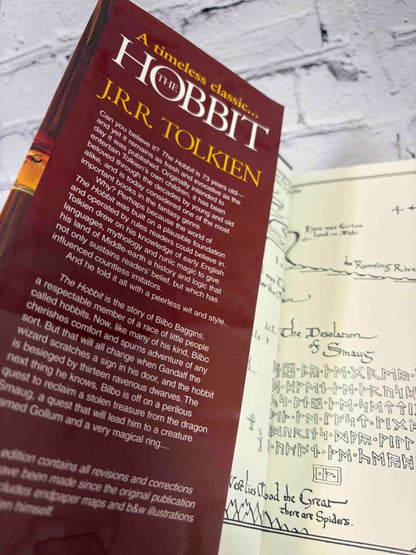 A timeless classic...
THE
HOBBIT
J.R.R. TOLKIEN
Can you believe it? The Hobbit is 73 years old—
and yet it remains as fresh and evocative as the
day it was published. Originally intended to
entertain Tolkien's own children, it has been
beloved through the decades by young and old
alike and is today considered one of the most
important books in the fantasy genre.
Why? Perhaps because the world of
The Hobbit was built on a plausible foundation
and operated by rules readers could believe in.
Tolkien drew on his knowledge of early English
languages, mythology and runic magic to give
his land of Middle-earth a history and logic that
not only sustains readers' belief, but which has
influenced countless imitators.
And he told it all with a peerless wit and style.
The Hobbit is the story of Bilbo Baggins,
a respectable member of a race of little people
called hobbits. Now, like many of his kind, Bilbo
cherishes comfort and spurns adventure of any
sort. But that will all change when Gandalf the
wizard scratches a sign in his door, and the hobbit
is besieged by thirteen ravenous dwarves. The
next thing he knows, Bilbo is off on a perilous
quest to reclaim a stolen treasure from the dragon
Smaug, a quest that will lead him to a creature
named Gollum and a very magical ring....
edition contains all revisions and corrections
have been made since the original publication
includes endpaper maps and b&w illustrations
himself.
Here was Girion
Lord in Dale
the Running River
The Desolation
of Smaug
West lies Mirkwood the Great
there are Spiders.